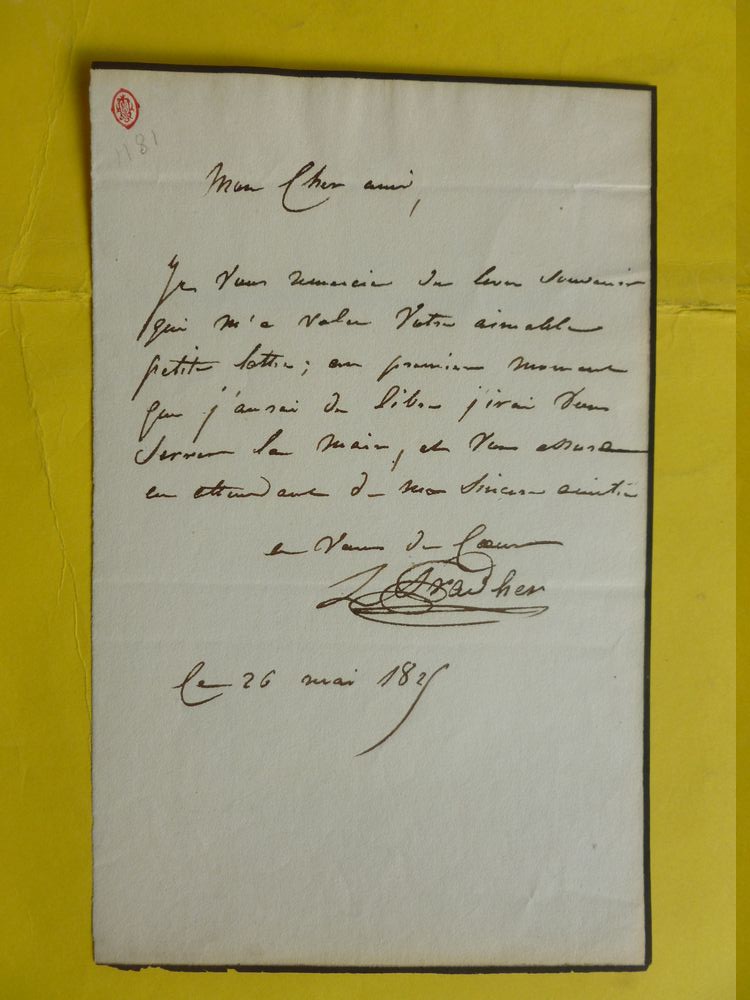 1181
Mon Cher ami,
Je Vous remercie du bon Souvenir
qui m'a valu Votre aimable
petite lettre; au premier moment
que j'aurai de libre j'irai Vous
Serrer la main, et Vous assure
en attendant de ma Sincere amitié
a Vous de Coeur
L Pradher
Ce 26 mai 1825